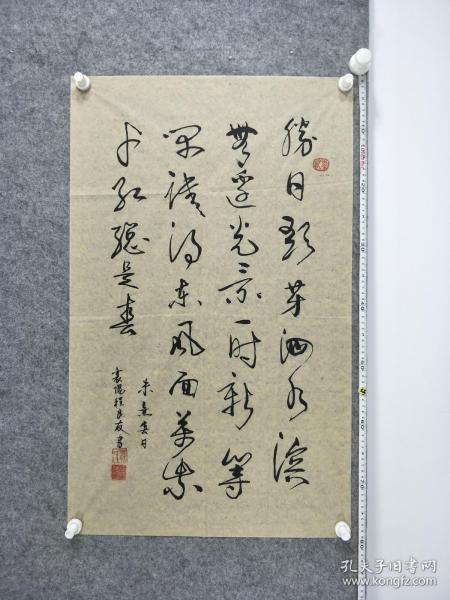 勝日尋芳泗水濱
無邊光景一時新等
閑識得東風面萬紫
千紅總是春
朱熹春日
襄陽程良友書
孔夫子旧书网
www.kongfz.com